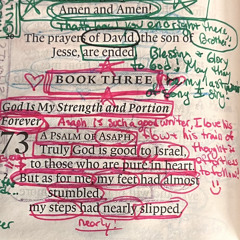 Amen and Amen!
That's how you end it right there, Brother!
The prayers of David, the son of
Jesse, are ended.
Blessing & Glory
to God! May they
be my last words
BOOK THREE
God Is My Strength and Portion
Forever
Asaph is such a good writer, I love his
flow & his train of
thought is
to follow!
73
A PSALM OF ASAPH.
Truly God is good to Israel,
to those who are pure in heart.
But as for me, my feet had almost
stumbled,
my steps had nearly slipped.
nearly!